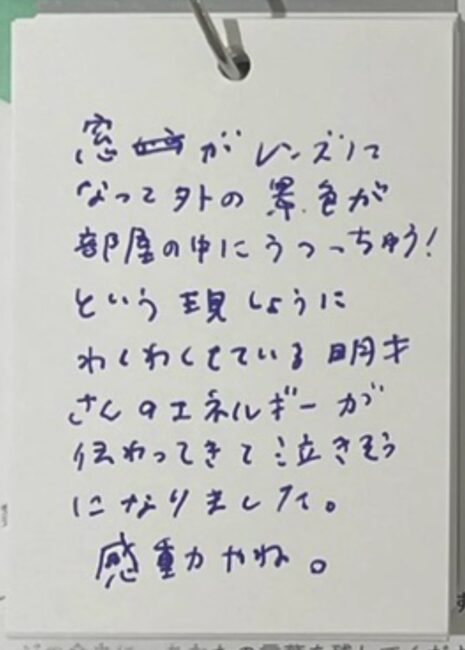 窓がレンズに
なって外の景色が
部屋の中にうつっちゅう!
という現しょうに
わくわくしている明才
さんのエネルギーが
伝わってきて泣きそう
になりました。
感動やね。